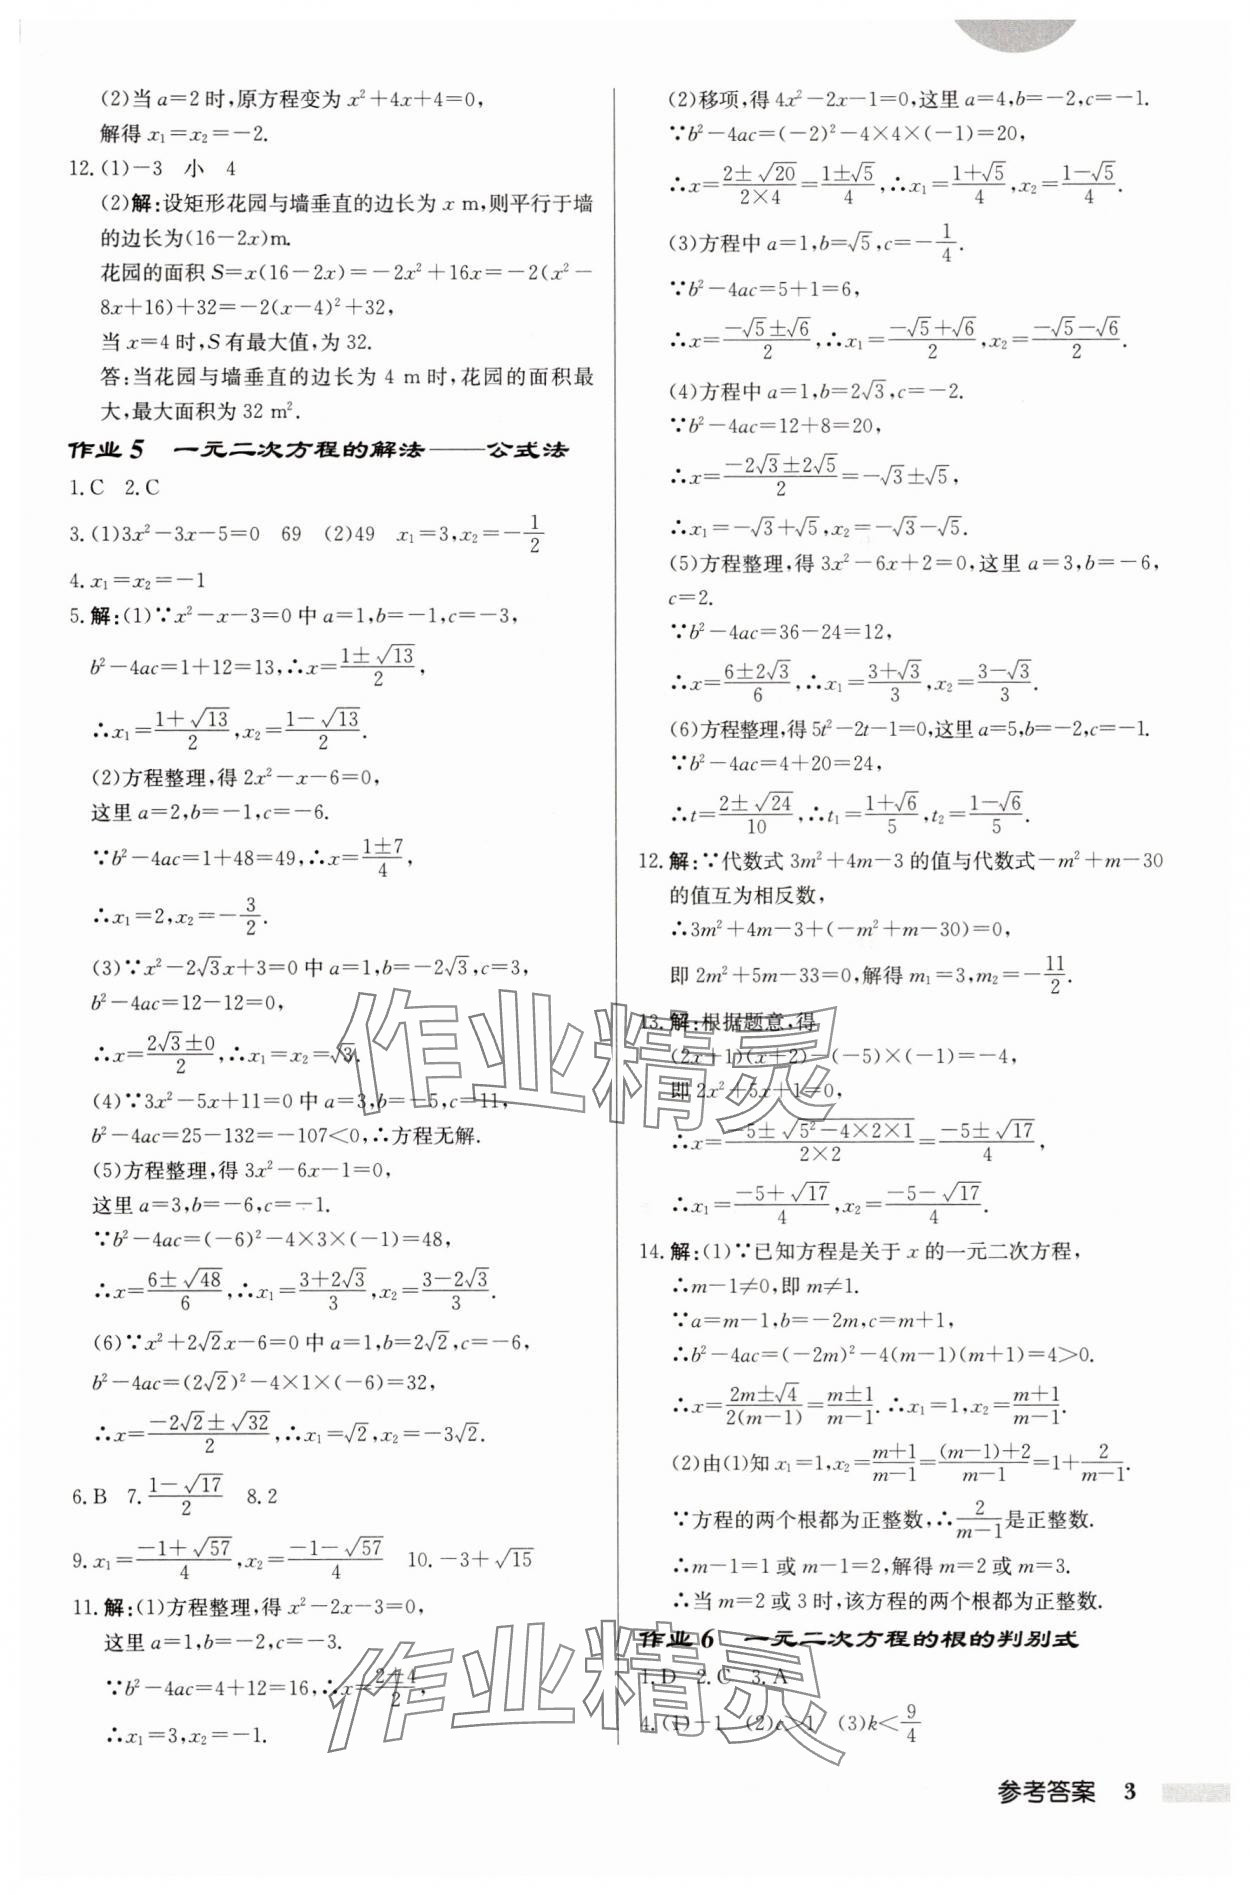 (2)当 a=2 时,原方程变为 x²+4x+4=0,
解得 x₁=x₂=-2.
12.(1)-3 小 4
(2)解:设矩形花园与墙垂直的边长为 x m,则平行于墙
的边长为(16-2x)m.
花园的面积 S=x(16-2x)=-2x²+16x=-2(x²-
8x+16)+32=-2(x-4)²+32,
当 x=4 时,S 有最大值,为 32.
答:当花园与墙垂直的边长为 4 m 时,花园的面积最
大,最大面积为 32 m².
作业 5 一元二次方程的解法——公式法
1.C 2.C
3.(1)3x²-3x-5=0 69 (2)49 x₁=3,x₂=-1/2
4.x₁=x₂=-1
5.解:(1)∵x²-x-3=0 中 a=1,b=-1,c=-3,
b²-4ac=1+12=13,∴x=(1±√13)/2,
∴x₁=(1+√13)/2,x₂=(1-√13)/2.
(2)方程整理,得 2x²-x-6=0,
这里 a=2,b=-1,c=-6.
∵b²-4ac=1+48=49,∴x=(1±7)/4,
∴x₁=2,x₂=-3/2.
(3)∵x²-2√3x+3=0 中 a=1,b=-2√3,c=3,
b²-4ac=12-12=0,
∴x=(2√3±0)/2,∴x₁=x₂=√3.
(4)∵3x²-5x+11=0 中 a=3,b=-5,c=11,
b²-4ac=25-132=-107<0,∴方程无解.
(5)方程整理,得 3x²-6x-1=0,
这里 a=3,b=-6,c=-1.
∵b²-4ac=(-6)²-4×3×(-1)=48,
∴x=(6±√48)/6,∴x₁=(3+2√3)/3,x₂=(3-2√3)/3.
(6)∵x²+2√2x-6=0 中 a=1,b=2√2,c=-6,
b²-4ac=(2√2)²-4×1×(-6)=32,
∴x=(-2√2±√32)/2,∴x₁=√2,x₂=-3√2.
6.B 7.(1-√17)/2 8.2
9.x₁=(-1+√57)/4,x₂=(-1-√57)/4 10.-3+√15
11.解:(1)方程整理,得 x²-2x-3=0,
这里 a=1,b=-2,c=-3.
∵b²-4ac=4+12=16,∴x=(2±4)/2,
∴x₁=3,x₂=-1.
(2)移项,得 4x²-2x-1=0,这里 a=4,b=-2,c=-1.
∵b²-4ac=(-2)²-4×4×(-1)=20,
∴x=(2±√20)/(2×4)=(1±√5)/4,∴x₁=(1+√5)/4,x₂=(1-√5)/4.
(3)方程中 a=1,b=√5,c=-1/4.
∵b²-4ac=5+1=6,
∴x=(-√5±√6)/2,∴x₁=(-√5+√6)/2,x₂=(-√5-√6)/2.
(4)方程中 a=1,b=2√3,c=-2.
∵b²-4ac=12+8=20,
∴x=(-2√3±2√5)/2=-√3±√5,
∴x₁=-√3+√5,x₂=-√3-√5.
(5)方程整理,得 3x²-6x+2=0,这里 a=3,b=-6,
c=2.
∵b²-4ac=36-24=12,
∴x=(6±2√3)/6,∴x₁=(3+√3)/3,x₂=(3-√3)/3.
(6)方程整理,得 5t²-2t-1=0,这里 a=5,b=-2,c=-1.
∵b²-4ac=4+20=24,
∴t=(2±√24)/10,∴t₁=(1+√6)/5,t₂=(1-√6)/5.
12.解:∵代数式 3m²+4m-3 的值与代数式-m²+m-30
的值互为相反数,
∴3m²+4m-3+(-m²+m-30)=0,
即 2m²+5m-33=0,解得 m₁=3,m₂=-11/2.
13.解:根据题意,得
(2x+1)(x+2)-(-5)×(-1)=-4,
即 2x²+5x+1=0,
∴x=(-5±√(5²-4×2×1))/(2×2)=(-5±√17)/4,
∴x₁=(-5+√17)/4,x₂=(-5-√17)/4.
14.解:(1)∵已知方程是关于 x 的一元二次方程,
∴m-1≠0,即 m≠1.
∵a=m-1,b=-2m,c=m+1,
∴b²-4ac=(-2m)²-4(m-1)(m+1)=4>0.
∴x=(2m±√4)/(2(m-1))=(m±1)/(m-1).∴x₁=1,x₂=(m+1)/(m-1).
(2)由(1)知 x₁=1,x₂=(m+1)/(m-1)=((m-1)+2)/(m-1)=1+2/(m-1).
∵方程的两个根都为正整数,∴2/(m-1)是正整数.
∴m-1=1 或 m-1=2,解得 m=2 或 m=3.
∴当 m=2 或 3 时,该方程的两个根都为正整数.
作业 6 一元二次方程的根的判别式
1.D 2.C 3.A
4.(1)-1 (2)c>1 (3)k<9/4
参考答案 3
作业精灵
作业精灵